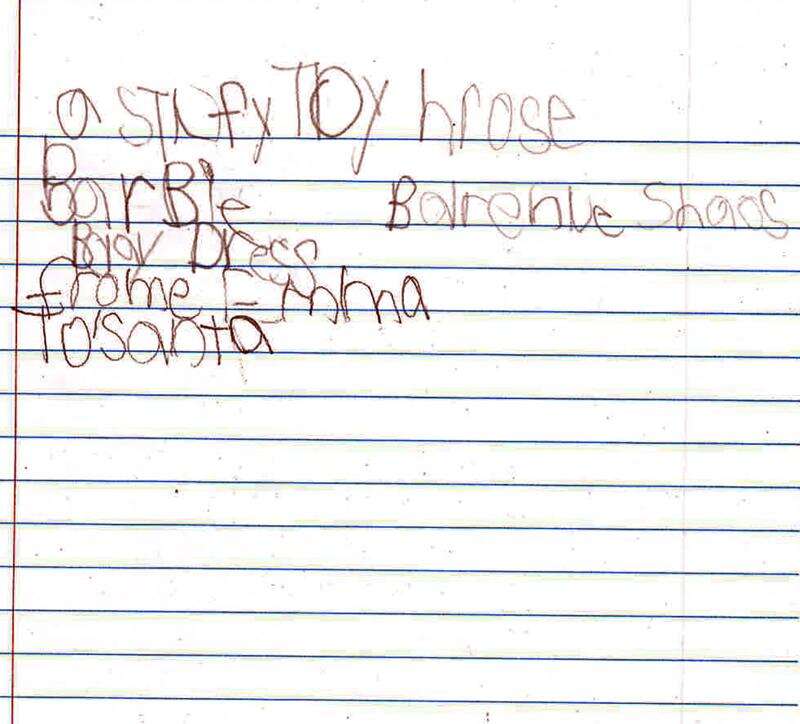 a stufy TOy hrose
BarBle Balrenue Shoos
Bray Dress
frome Emma
To Santa